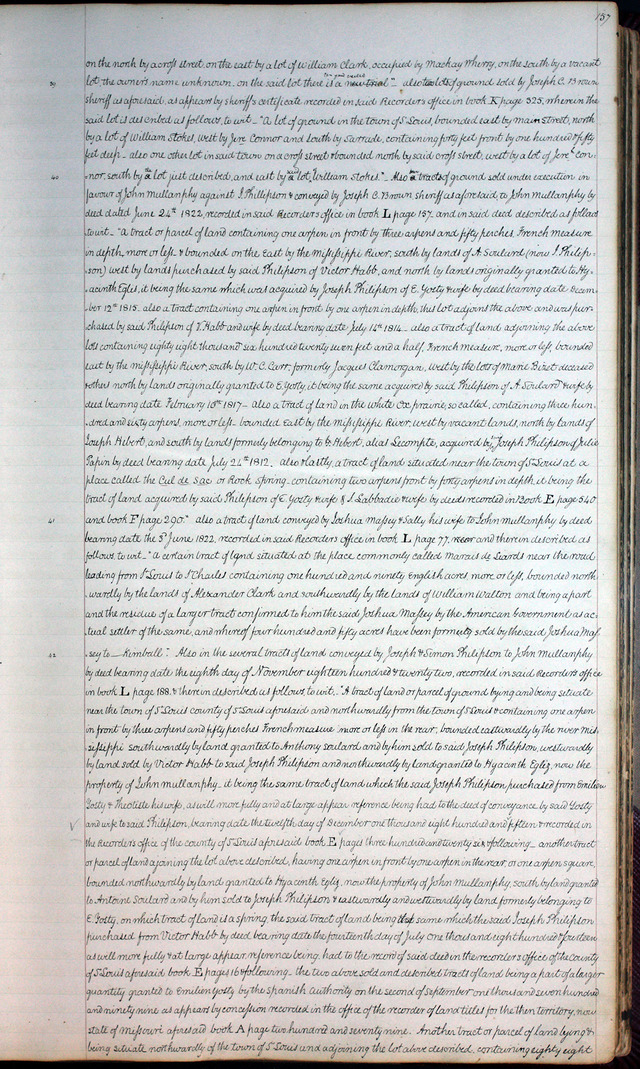 157
on the north by a cross street, on the east by a lot of William Clark, occupied by Mackay Wherry, on the south by a vacant
39 lot the owner's name unknown_ on the said lot there is a new trial"_ also two lots of ground sold by Joseph C. Brown
sheriff as aforesaid, as appears by sheriff's certificate recorded in said Recorders office in book E page 325, wherein the
said lot is described as follows, to wit_ "A lot of ground in the town of St Louis, bounded east by main street, north
by a lot of William Stokes, west by Jere Connor and south by Sarrade, containing forty feet front by one hundred & fifty
feet deep_ also one other lot in said town on a cross street & bounded north by said cross street, west by a lot of Jere. Con-
40 nor, south by the lot just described, and east by said lot, William Stokes." Also a tracts of ground sold under execution in
favour of John Mullanphy against J. Phillipson & conveyed by Joseph C. Brown sheriff as aforesaid, to John Mullanphy by
deed dated June 24th 1822, recorded in said Recorders office in book L page 137 and in said deed described as follows
to wit_ "a tract or parcel of land containing one arpen in front by three arpens and fifty perches French measure
in depth, more or less & bounded on the East by the Mississippi River, south by lands of A. Soulard (now J. Philip-
son) west by lands purchased by said Philipson of Victor Habb, and north by lands originally granted to Hy-
acinth Eglis, it being the same which was acquired by Joseph Philipson of E. Yosty & wife by deed bearing date Decem-
ber 12th 1815. also a tract containing one arpen in front by one arpen in depth, this lot adjoins the above and was pur-
chased by said Philipson of V. Habb and wife by deed bearing date July 14th 1814_ also a tract of land adjoining the above
lots containing eighty eight thousand six hundred twenty seven feet and a half, French measure, more or less, bounded
east by the Mississippi River, south by W. C. Carr, formerly Jacques Clamorgan, west by the lots of Marie Bizet deceased
& others north by lands originally granted to E. Yosty, it being the same acquired by said Philipson of A. Soulard & wife by
deed bearing date February 10th 1817_ also a tract of land in the white Ox prairie, so called, containing three hun-
dred and sixty arpens, more or less_ bounded East by the Mississippi River, west by vacant lands, north by lands of
Joseph Hebert, and south by lands formerly belonging to G. Hebert, alias Lecompte, acquired by Joseph Philipson of Julie
Papin by deed bearing date July 24th 1812. also & lastly, a tract of land situated near the town of St Louis at a
place called the Cul de Sac or Rock spring_ containing two arpens front by forty arpens in depth, it being the
tract of land acquired by said Philipson of E. Yosty & wife & S. Labbadie & wife by deeds recorded in Book E page 340
41 and book F page 290." also a tract of land conveyed by Joshua Massey & Sally his wife to John Mullanphy by deed
bearing date the 3d June 1822, recorded in said Recorders office in book L page 77, recor and therein described as
follows, to wit_ "a certain tract of land situated at the place commonly called Marais de Liards near the road
leading from St Louis to St Charles containing one hundred and ninety English acres more or less, bounded north-
wardly by the lands of Alexander Clark and southwardly by the lands of William Walton and being a part
and the residue of a larger tract confirmed to him the said Joshua Massey by the American Government as ac-
tual settler of the same, and whereof four hundred and fifty acres have been formerly sold by the said Joshua Mas-
42 sey to _ Kimball". Also in the several tracts of land conveyed by Joseph & Simon Philipson to John Mullanphy
by deed bearing date the eighth day of November eighteen hundred & twenty two, recorded in said Recorders office
in book L page 188. & therein described as follows, to wit_ "A tract of land or parcel of ground lying and being situate
near the town of St Louis county of St Louis aforesaid and northwardly from the town of St Louis & containing one arpen
in front by three arpens and fifty perches French measure more or less in the rear, bounded eastwardly by the river Mis-
sissippi southwardly by land granted to Anthony Soulard and by him sold to said Joseph Philipson, westwardly
by land sold by Victor Habb to said Joseph Philipson and northwardly by land granted to Hyacinth Eglis, now the
property of John Mullanphy_ it being the same tract of land which the said Joseph Philipson purchased from Emilien
Yosty & Theotiste his wife, as will more fully and at large appear reference being had to the deed of conveyance by said Yosty
and wife to said Philipson, bearing date the twelfth day of December one thousand eight hundred and fifteen & recorded in
the Recorders office of the county of St Louis aforesaid book E pages three hundred and twenty six & following_ another tract
or parcel of land adjoining the lot above described, having one arpen in front by one arpen in the rear, or one arpen square,
bounded northwardly by land granted to Hyacinth Eglis, now the property of John Mullanphy, south by land granted
to Antoine Soulard and by him sold to Joseph Philipson & eastwardly and westwardly by land formerly belonging to
E. Yosty, on which tract of land is a spring, the said tract of land being the same which the said Joseph Philipson
purchased from Victor Habb by deed bearing date the fourteenth day of July one thousand eight hundred & fourteen
as will more fully & at large appear, reference being had to the record of said deed in the recorders office of the County
of St Louis aforesaid book E pages 16 & following_ the two above sold and described tracts of land being a part of a larger
quantity granted to Emilien Yosty by the Spanish authority on the second of September one thousand seven hundred
and ninety nine as appears by concession recorded in the office of the recorder of land titles for the then territory, now
state of Missouri aforesaid book A page two hundred and seventy nine. Another tract or parcel of land lying &
being situate northwardly of the town of St Louis and adjoining the lot above described, containing eighty eight